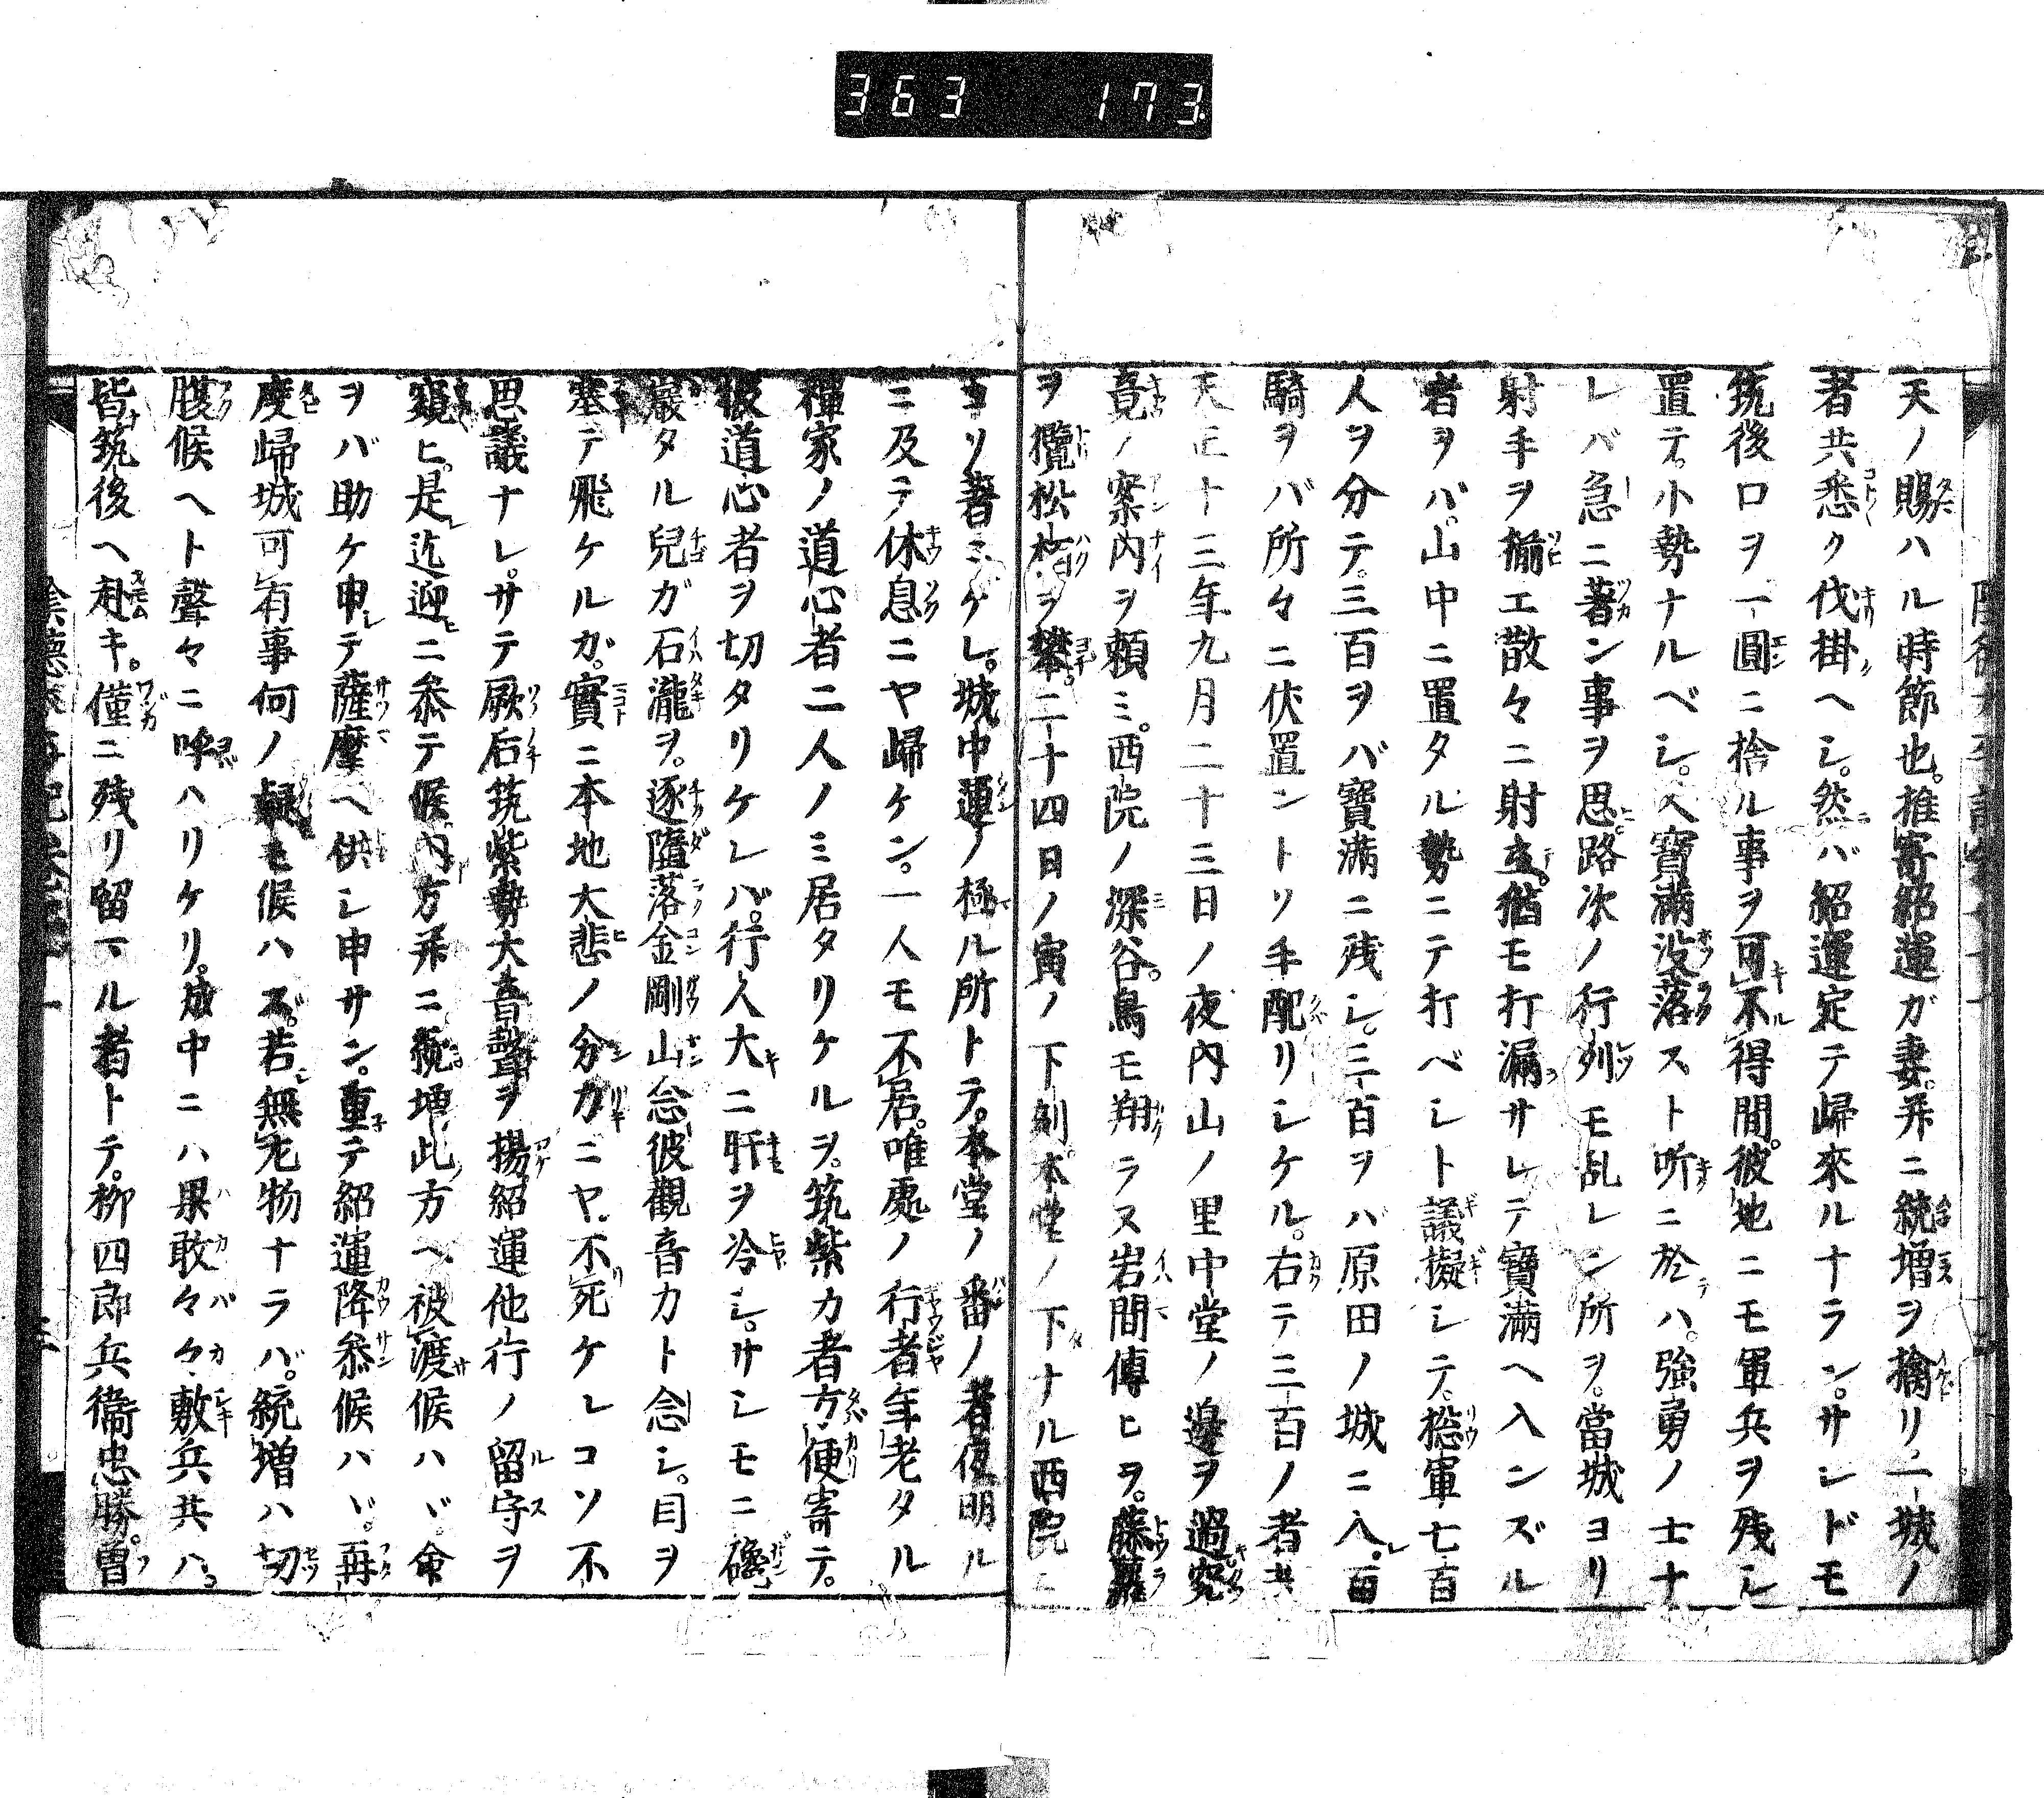 363 173
天ノ賜ハル時節也。推寄紹運ガ妻。并ニ統増ヲ擒リ一城ノ
者共悉ク伐掛ヘシ。然バ紹運定テ帰來ルナラン。サレドモ
筑後口ヲ一圓ニ捨ル事ヲ可不得間。彼地ニモ軍兵ヲ残シ
置テ。小勢ナルベシ。又寶満没落スト听ニ於ハ。強勇ノ士ナ
レバ急ニ著ン事ヲ思。路次ノ行列モ乱レン所ヲ。當城ヨリ
射手ヲ揃エ散々ニ射立。猶モ打漏サレテ寶満ヘ入ンズル
者ヲバ。山中ニ置タル勢ニテ打ベシト議擬シテ。捴軍七百
人ヲ分テ。三百ヲバ寶満ニ残シ。三百ヲバ原田ノ城ニ入。百
騎ヲバ所々ニ伏置ントソ手配リシケル。右テ三百ノ者共
天正十三年九月二十三日ノ夜内山ノ里中堂ノ邊ヲ過究
竟ノ案内ヲ頼ミ。西院ノ深谷。鳥モ翔ラヌ岩間傳ヒヲ。藤蘿
ヲ攬松柏ヲ攀。二十四日ノ寅ノ下刻本堂ノ下ナル西院ニ
コソ著ニケレ。城中運ノ極ル所トテ。本堂ノ番ノ者夜明ル
ニ及テ休息ニヤ帰ケン。一人モ不居。唯處ノ行者年老タル
禪家ノ道心者二人ノミ居タリケルヲ。筑紫カ者方便寄テ。
彼道心者ヲ切タリケレバ。行人大ニ肝ヲ冷シ。サシモニ巉
巖タル兒ガ石瀧ヲ。逐墮落金剛山念彼觀音力ト念シ。目ヲ
塞テ飛ケルガ。實ニ本地大悲ノ分力ニヤ。不死ケレコソ不
思議ナレ。サテ厥后筑紫勢大音聲ヲ揚。紹運他行ノ留守ヲ
窺ヒ。是迄迎ニ參テ候。内方并ニ統増此方ヘ被渡候ハヾ命
ヲバ助ケ申テ薩摩ヘ供シ申サン。重テ紹運降參候ハヾ。再
度帰城可有事何ノ疑モ候ハズ。若無左物ナラバ。統増ハ切
腹候ヘト聲々ニ呼ハリケリ。城中ニハ果敢々々敷兵共ハ。
皆筑後ヘ赴キ。僅ニ残リ留マル者トテ。柳四郎兵衞忠勝。曽